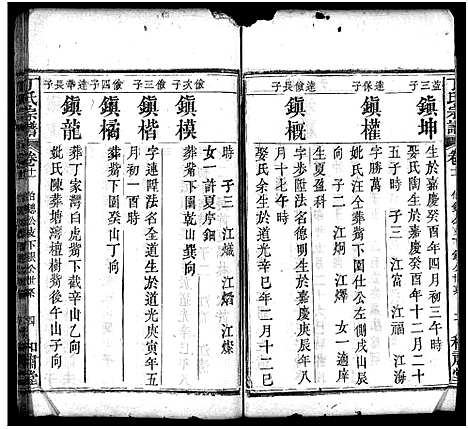 丁氏宗譜
卷十一
益三子
鎮坤
生於嘉慶癸酉年四月初三午時
妣氏生於嘉慶癸酉年十二月二十
五 子三 江富 江福 江海
達保子
鎮權
字勝萬
妣氏汪仝葬觜下仕公左側戌山辰
向 子二 江炯 江煇 女一適
達儉長子
鎮概
生夏盈科
字長生法名德明生於道光
娶氏余生於道光辛巳年二月十二巳
時 子三 江熾 江熠 江煠
女一許夏序鈿
儉次子
鎮模
葬觜下園乾山巽向
儉三子
鎮楷
字連陞法名全道生於道光庚寅年五
月初一日 葬觜下園癸山丁向
儉四子
鎮橘
達華長子
鎮龍
葬丁家灣白虎觜下截辛山乙向
妣氏陳葬塘灣檀樹觜後午山子向
丁氏宗譜
卷十一
四
和肅堂